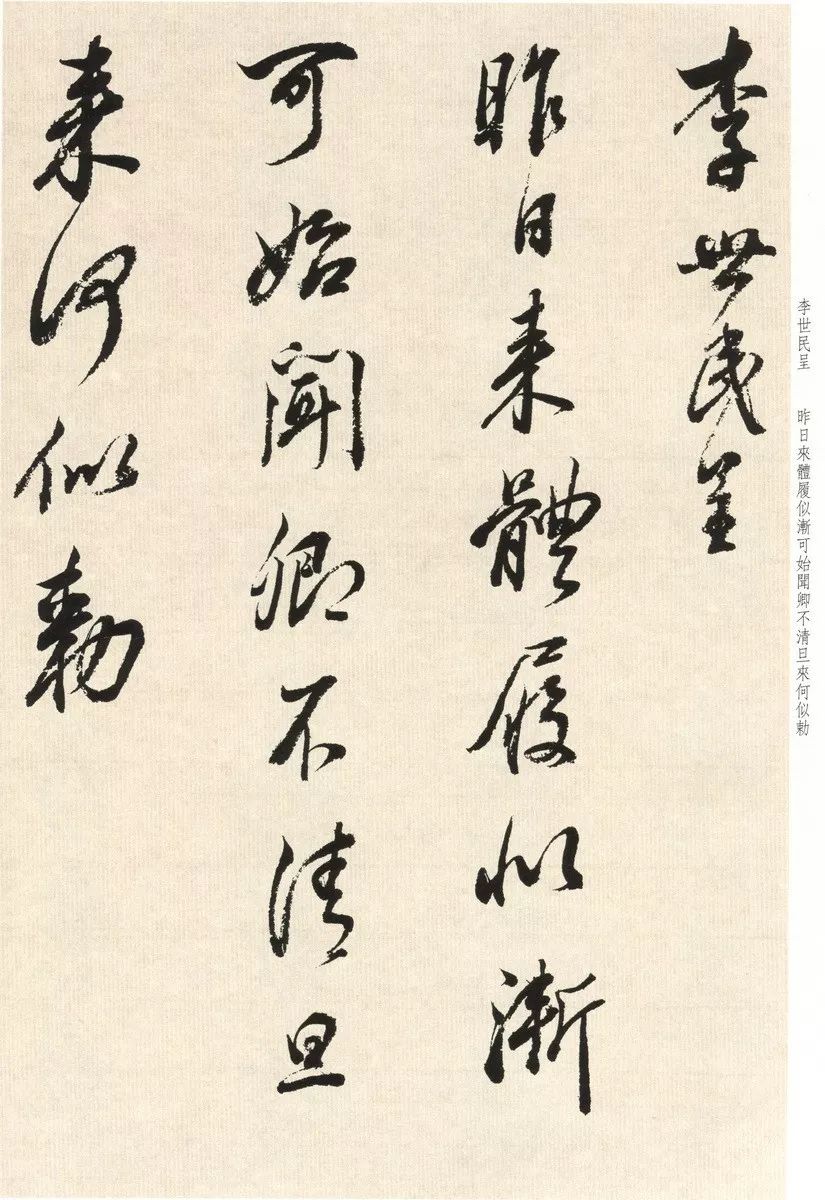 李世民呈
昨日来體履似漸
可始聞卿不清旦
来何似勅
李世民呈　昨日來體履似漸可始聞卿不清旦來何似勅